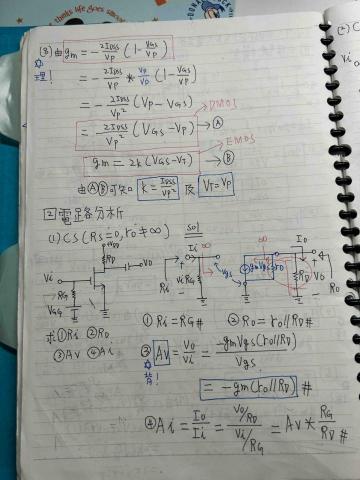 think positive
this life goes sweet
(3)由gm = -2IDSS/VP (1-VGS/VP)
理!
= -2IDSS/VP * VP/VP (1-VGS/VP)
= -2IDSS/VP² (VP-VGS)
DMOS
= -2IDSS/VP² (VGS-VP) → Ⓐ
EMOS
gm = 2k(VGS-VT) → Ⓑ
由ⒶⒷ可知 k = IDSS/VP² 及 VT=VP
2 電路分析
(1) CS (RS=0, ro≠∞) sol
VDD
RD
Vo
Vi
RG
VGG
Ii ∞
Ri Vi RG Vgs
∞ Io
gmVgs ro RD Vo Ro
求①Ri ②Ro
③Av ④Ai
① Ri=RG# ② Ro=ro//RD#
③ Av = Vo/Vi = -gmVgs(ro//RD)/Vgs
背!
= -gm(ro//RD) #
④ Ai = Io/Ii = (Vo/RD)/(Vi/RG) = Av * RG/RD #